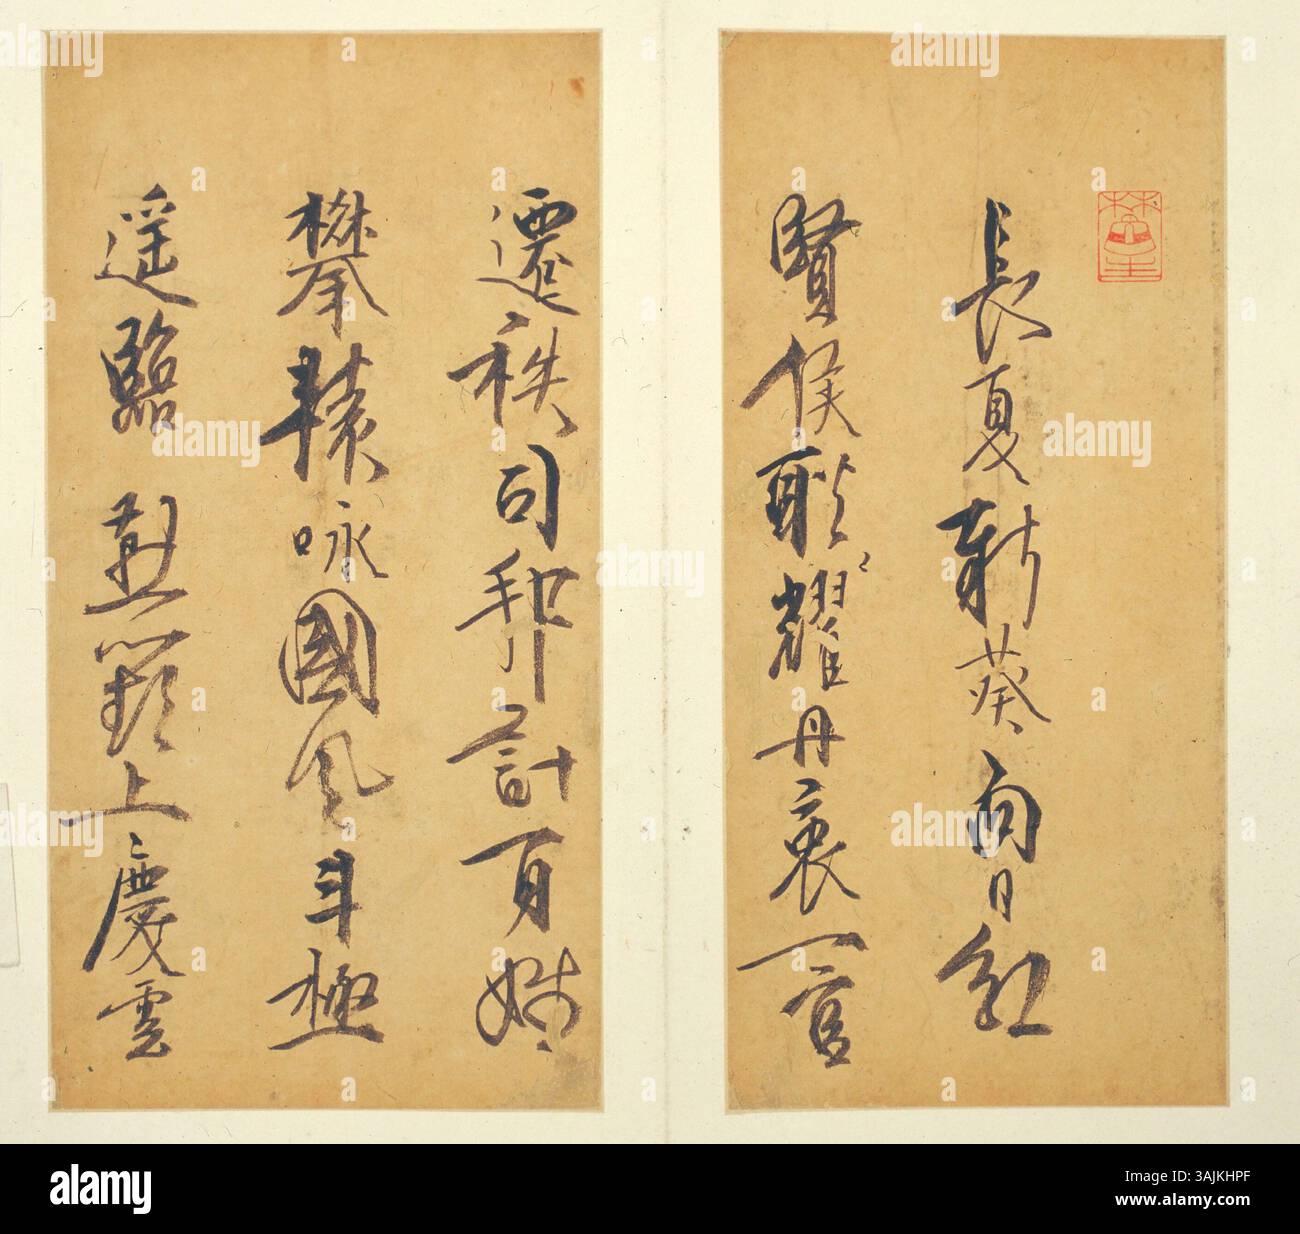 長夏新葵向日紅
賢侯聯耀丹衷一官
遷秩司和計百姓
攀轅咏國風斗極
遥臨 上慶雲
alamy
Image ID: 3AJKHPF
www.alamy.com